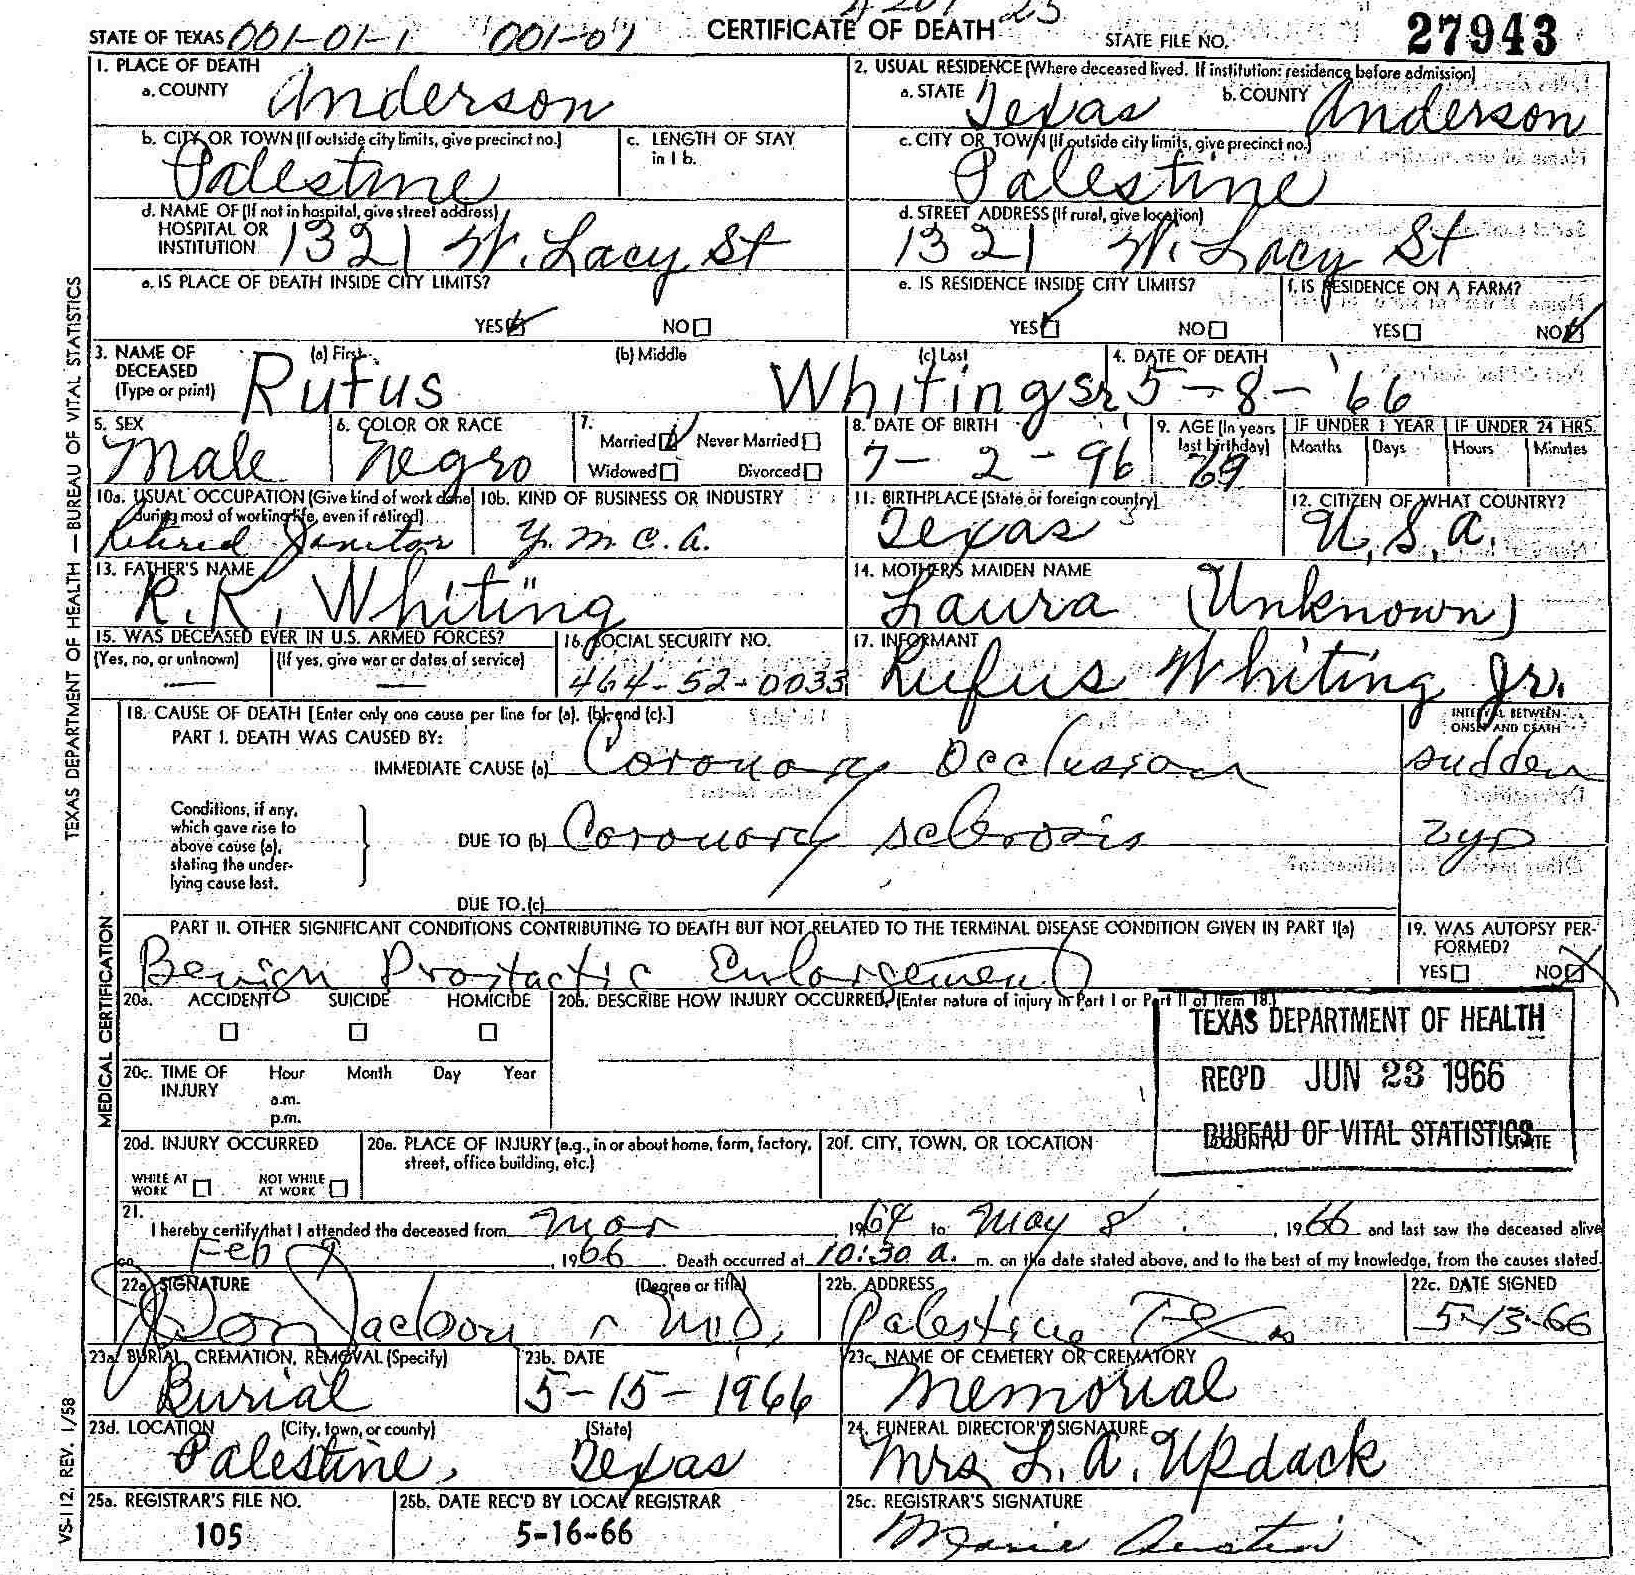 CERTIFICATE OF DEATH
STATE OF TEXAS 001-01-1 001-01 STATE FILE NO. 27943
1. PLACE OF DEATH
a. COUNTY Anderson
2. USUAL RESIDENCE (Where deceased lived. If institution: residence before admission)
a. STATE Texas b. COUNTY Anderson
b. CITY OR TOWN (If outside city limits, give precinct no.) Palestine
c. LENGTH OF STAY in 1 b.
c. CITY OR TOWN (If outside city limits, give precinct no.) Palestine
d. NAME OF (If not in hospital, give street address)
HOSPITAL OR
INSTITUTION 1321 W. Lacy St
d. STREET ADDRESS (If rural, give location)
1321 W. Lacy St
e. IS PLACE OF DEATH INSIDE CITY LIMITS?
YES NO
e. IS RESIDENCE INSIDE CITY LIMITS?
YES NO
f. IS RESIDENCE ON A FARM?
YES NO
3. NAME OF DECEASED (Type or print)
(a) First (b) Middle (c) Last
Rufus Whiting Sr.
4. DATE OF DEATH
5-8-'66
5. SEX
Male
6. COLOR OR RACE
Negro
7.
Married Never Married
Widowed Divorced
8. DATE OF BIRTH
7-2-96
9. AGE (In years last birthday)
69
IF UNDER 1 YEAR IF UNDER 24 HRS.
Months Days Hours Minutes
10a. USUAL OCCUPATION (Give kind of work done during most of working life, even if retired)
Retired Janitor
10b. KIND OF BUSINESS OR INDUSTRY
Y.M.C.A.
11. BIRTHPLACE (State or foreign country)
Texas
12. CITIZEN OF WHAT COUNTRY?
U.S.A.
13. FATHER'S NAME
R.R. Whiting
14. MOTHER'S MAIDEN NAME
Laura (Unknown)
15. WAS DECEASED EVER IN U.S. ARMED FORCES?
(Yes, no, or unknown) (If yes, give war or dates of service)
— —
16. SOCIAL SECURITY NO.
464-52-0033
17. INFORMANT
Rufus Whiting Jr.
18. CAUSE OF DEATH [Enter only one cause per line for (a), (b), and (c).]
INTERVAL BETWEEN ONSET AND DEATH
PART I. DEATH WAS CAUSED BY:
IMMEDIATE CAUSE (a) Coronary Occlusion sudden
Conditions, if any,
which gave rise to
above cause (a),
stating the under-
lying cause last.
DUE TO (b) Coronary sclerosis 2 yrs
DUE TO (c)
PART II. OTHER SIGNIFICANT CONDITIONS CONTRIBUTING TO DEATH BUT NOT RELATED TO THE TERMINAL DISEASE CONDITION GIVEN IN PART I(a)
Benign Prostactic Enlargement
19. WAS AUTOPSY PERFORMED?
YES NO
20a. ACCIDENT SUICIDE HOMICIDE
20b. DESCRIBE HOW INJURY OCCURRED. (Enter nature of injury in Part I or Part II of Item 18.)
TEXAS DEPARTMENT OF HEALTH
REC'D JUN 23 1966
BUREAU OF VITAL STATISTICS
20c. TIME OF INJURY Hour Month Day Year
a.m.
p.m.
20d. INJURY OCCURRED
WHILE AT WORK NOT WHILE AT WORK
20e. PLACE OF INJURY (e.g., in or about home, farm, factory, street, office building, etc.)
20f. CITY, TOWN, OR LOCATION STATE
21.
I hereby certify that I attended the deceased from Mar 1964 to May 8, 1966 and last saw the deceased alive
on Feb 9, 1966. Death occurred at 10:30 a. m. on the date stated above, and to the best of my knowledge, from the causes stated.
22a. SIGNATURE (Degree or title)
Jackson M.D.
22b. ADDRESS
Palestine Texas
22c. DATE SIGNED
5-13-66
23a. BURIAL, CREMATION, REMOVAL (Specify)
Burial
23b. DATE
5-15-1966
23c. NAME OF CEMETERY OR CREMATORY
Memorial
23d. LOCATION (City, town, or county) (State)
Palestine, Texas
24. FUNERAL DIRECTOR'S SIGNATURE
Mrs. L. A. Updack
25a. REGISTRAR'S FILE NO.
105
25b. DATE REC'D BY LOCAL REGISTRAR
5-16-66
25c. REGISTRAR'S SIGNATURE
Marie Austin
TEXAS DEPARTMENT OF HEALTH — BUREAU OF VITAL STATISTICS
MEDICAL CERTIFICATION
VS-112, REV. 1/58